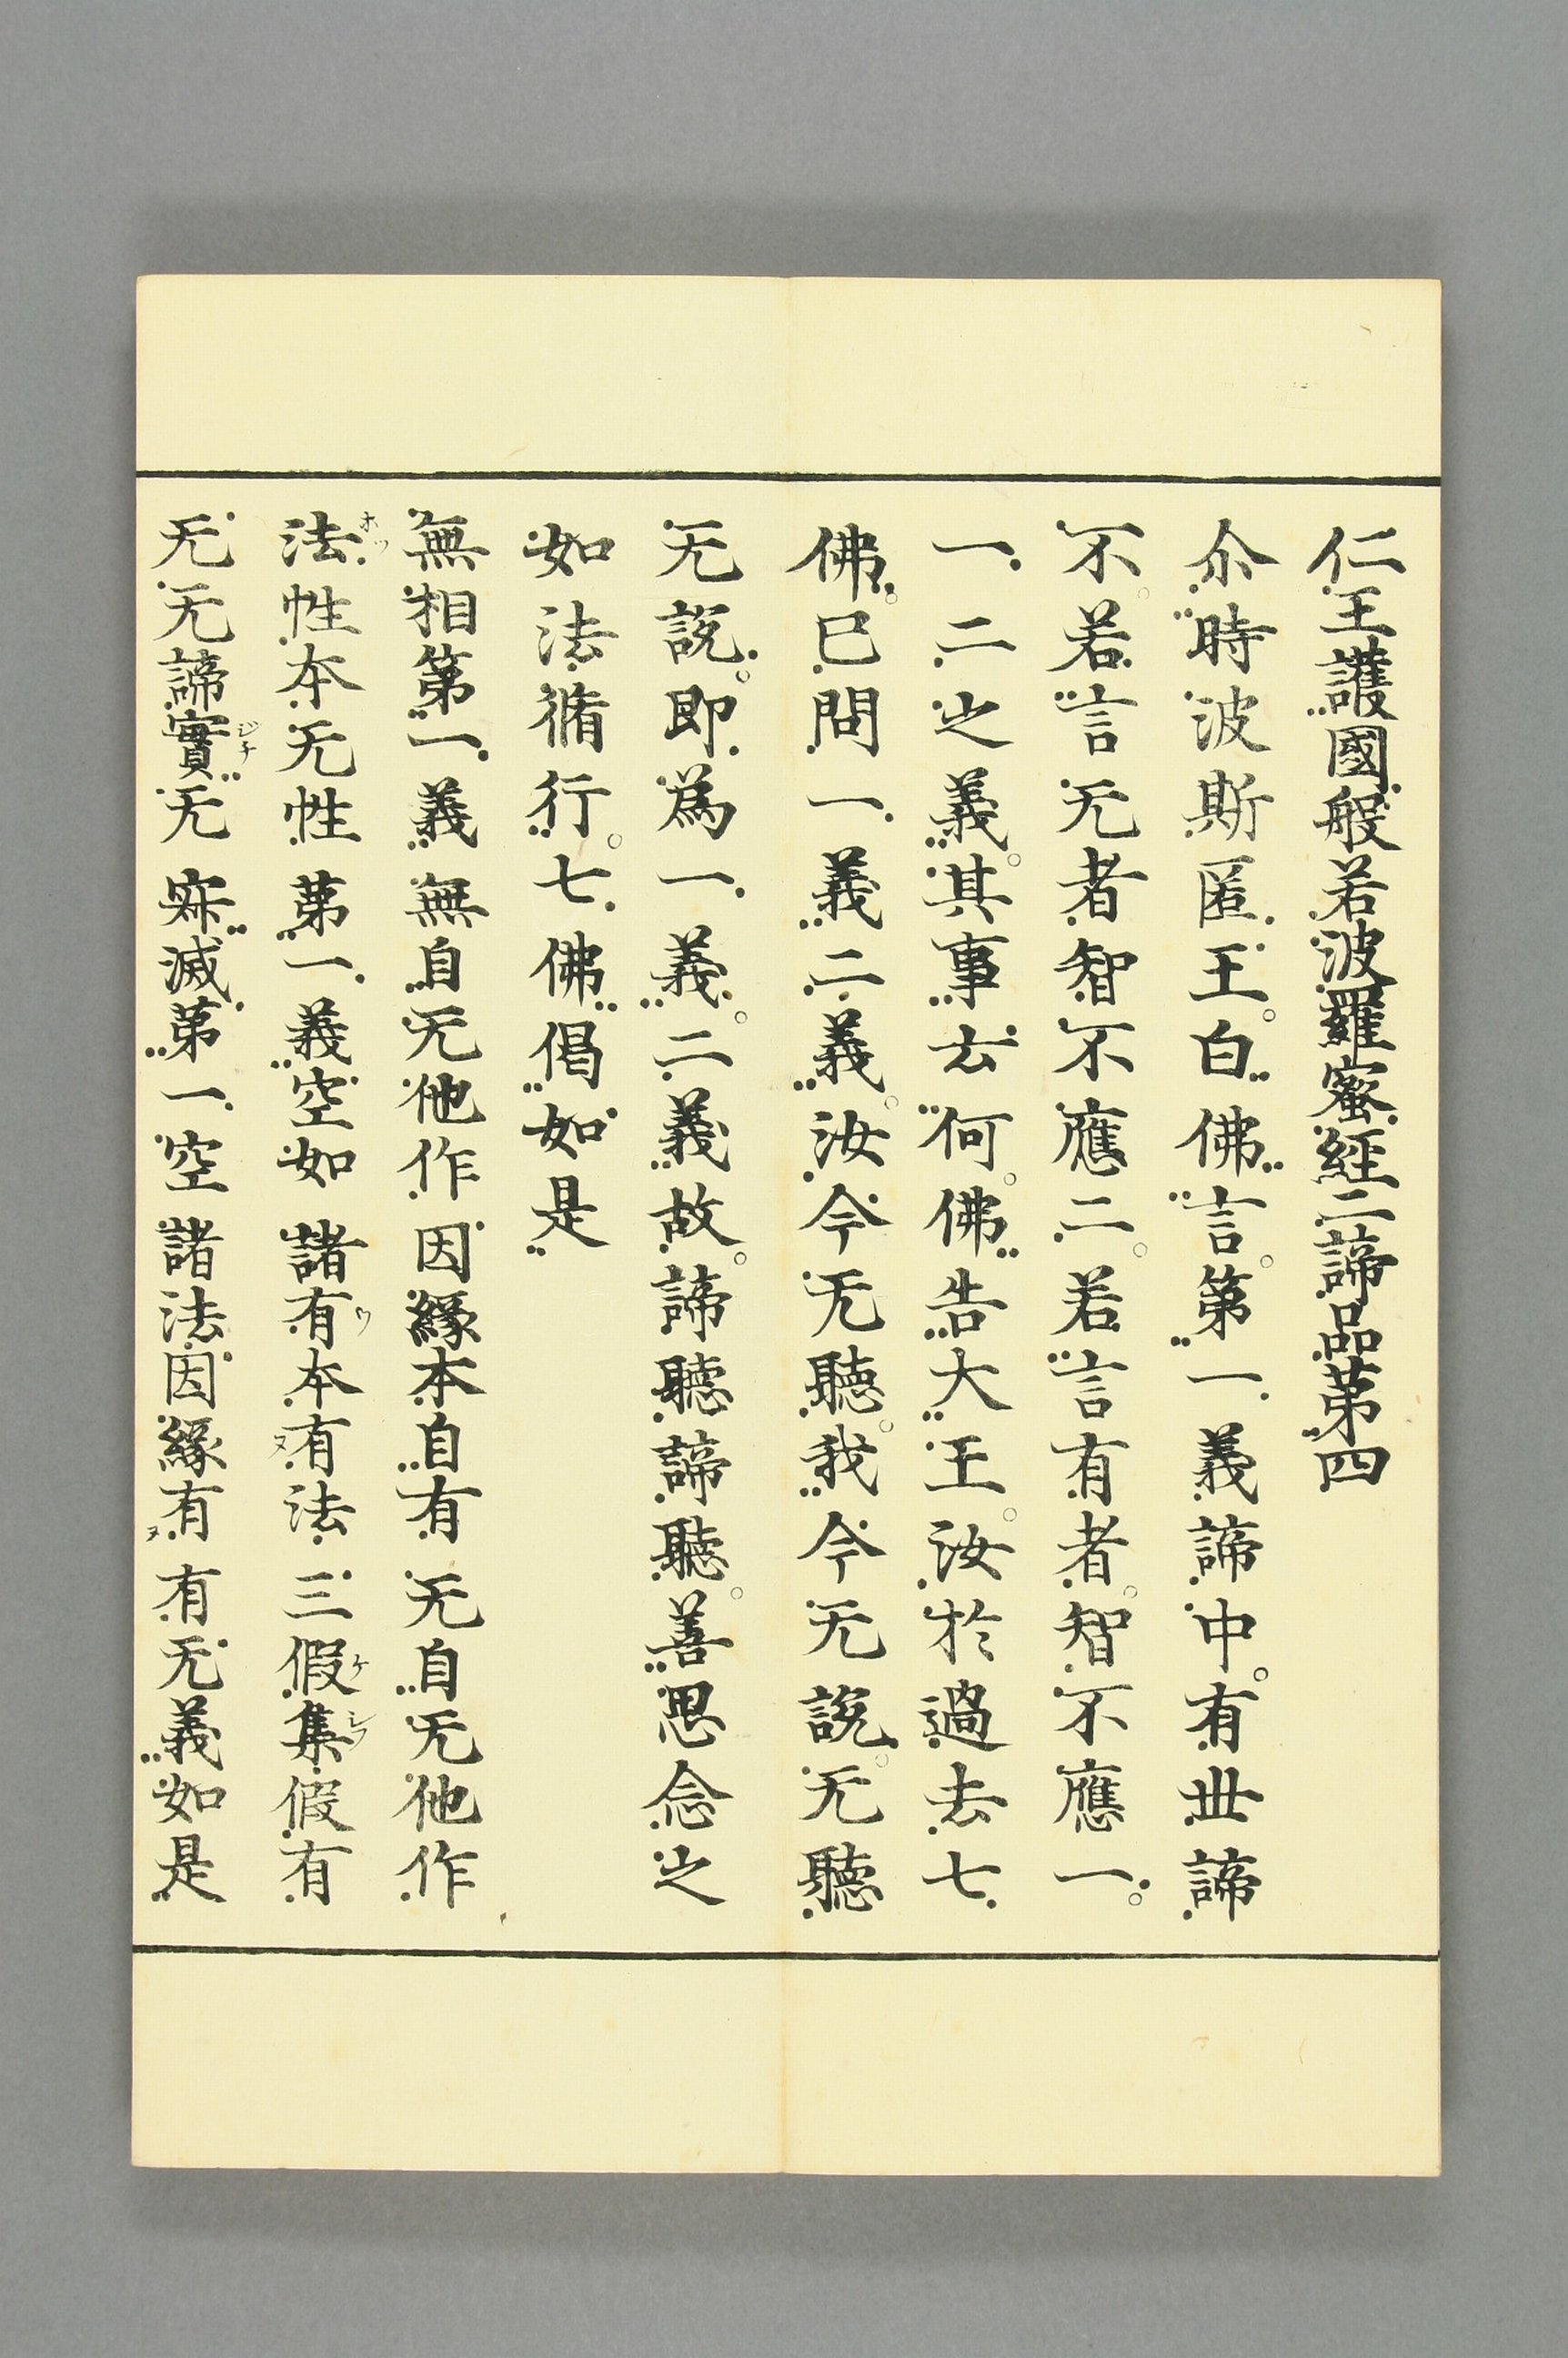 仁王護國般若波羅蜜経二諦品第四
尒時波斯匿王白佛言第一義諦中有丗諦
不若言无者智不應二若言有者智不應一
一二之義其事云何佛告大王汝於過去七
佛已問一義二義汝今无聽我今无說无聽
无說即為一義二義故諦聽諦聽善思念之
如法脩行七佛偈如是
無相第一義 無自无他作 因緣本自有 无自无他作
法性本无性 第一義空如 諸有本有法 三假集假有
无无諦實无 寂滅第一空 諸法因緣有 有无義如是